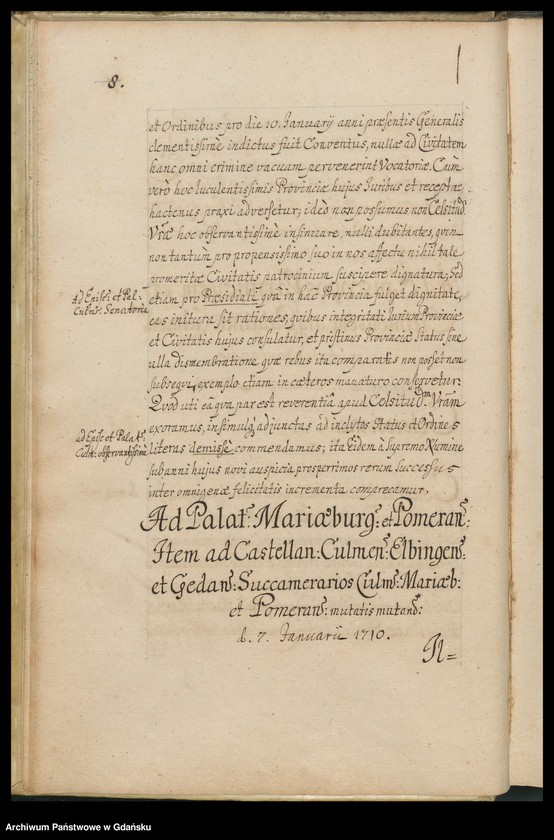 8.
et Ordinibus pro die 10. Januarij anni præsentis Generalis
clementissime indictus fuit Conventus, nullæ ad Civitatem
hanc omni crimine vacuam pervenerint Vocatoriæ. Cum
verò hoc luculentissimis Provinciæ hujus Juribus et receptæ
hactenus praxi adversetur; ideò non possumus non Celsitud:
Vræ hoc observantissimè insinuare, nulli dubitantes, quin
non tantum pro propensissimo suo in nos affectu nihil tale
promeritæ Civitatis patrocinium suscipere dignatura; sed
etiam pro Præsidiali quâ in hac Provincia fulget dignitate,
Ad Episc: et Pal.
Culm: Senatoria
eas initura sit rationes, qvibus integritati Jurium Provinciæ
et Civitatis hujus consulatur, et pristinus Provinciæ Status, sine
ulla dismembratione quæ rebus ita comparatis non posset non
subsequi, exemplo etiam in cæteros manaturo conservetur.
Quod uti eâ qva par est reverentiâ apud Celsitud:m Vram
exoramus, insimulq adjunctas ad inclytos Status et Ordines
ad Episc et Palat:
Culm: observantissimè
literas demissè commendamus; ita eidem à Supremo Numine
sub anni hujus novi auspicia prosperrimos rerum Successus
inter omnigenæ felicitatis incrementa comprecamur.
Ad Palat: Mariæburg: et Pomeran:
Item ad Castellan: Culmen: Elbingens:
et Gedan: Succamerarios Culm: Mariæb:
et Pomeran: mutatis mutand:
d. 7. Januarii 1710.
Archiwum Państwowe w Gdańsku